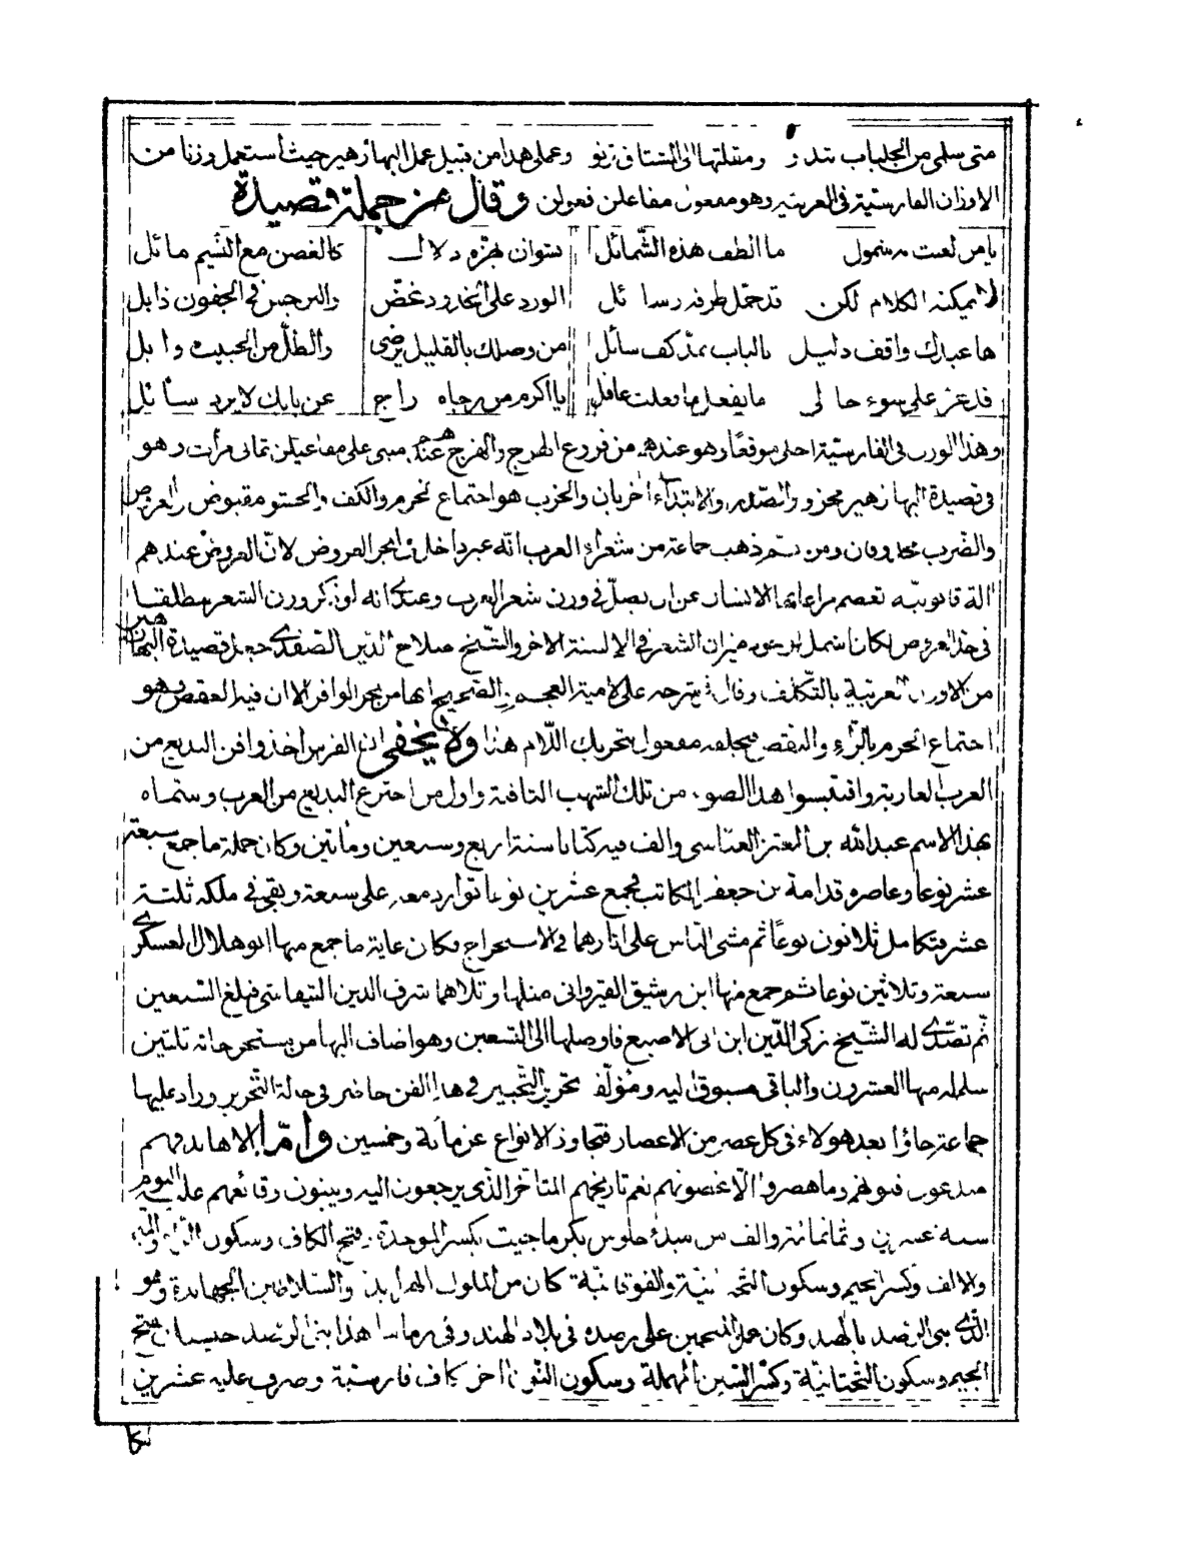 متى سلمى من الجلباب تبدو ومقلتها الى المشتاق ترنو وعملى هذا من قبيل عمل البها زهير حيث استعمل وزنا من
الاوزان الفارسية فى العربية وهو مفعول مفاعلن فعولن وقال من جملة قصيدة
يا من لعبت به شمول ما الطف هذه الشمائل نشوان يهزه دلال كالغصن مع النسيم مائل
لا يمكنه الكلام لكن قد حمل طرفه رسائل الورد على الخدود غض والنرجس فى الجفون ذابل
ها عبدك واقف ذليل بالباب يمد كف سائل من وصلك بالقليل يرضى والطل من الحبيب وابل
قد عز على سوء حالى ما يفعل ما فعلت عاقل يا اكرم من رجاه راج عن بابك لا يرد سائل
وهذا الوزن فى الفارسية احلى موقعًا وهو عندهم من فروع الهزج والهزج عندهم مبنى على مفاعيلن ثمانى مرات وهو
فى قصيدة البها زهير مجزو والصدر والابتداء اخربان والخرب هو اجتماع الخرم والكف والحشو مقبوض والعروض
والضرب محذوفان ومن ثم ذهب جماعة من شعراء العرب انه غير داخل فى ابحر العروض لان العروض عندهم
آلة قانونية تعصم مراعاتها الانسان عن ان يضل فى وزن شعر العرب وعندى انه لو ذكر وزن الشعر مطلقا
فى حد العروض لكان اشمل لوجود ميزان الشعر فى الالسنة الاخر والشيخ صلاح الدين الصفدى جعل قصيدة البها زهير
من الاوزان العربية بالتكلف وقال فى شرحه على لامية العجم الصحيح انها من بحر الوافر الا ان فيه العقص وهو
اجتماع الخرم بالراء والنقص فيخلفه مفعول بتحريك اللام هذا ولا يخفى ان الفرس اخذوا فن البديع من
العرب العاربة واقتبسوا هذا الضوء من تلك الشهب الثاقبة واول من اخترع البديع من العرب وسماه
بهذا الاسم عبدالله بن المعتز العباسى والف فيه كتابا سنة اربع وسبعين ومأتين وكان جملة ما جمع سبعة
عشر نوعا وعاصره قدامة بن جعفر الكاتب فجمع عشرين نوعا توارد معه على سبعة وبقى فى ملكه ثلثة
عشر فتكامل ثلاثون نوعًا ثم مشى الناس على اثارهما فى الاستخراج فكان غاية ما جمع منها ابو هلال العسكرى
سبعة وثلاثين نوعا ثم جمع منها ابن رشيق القيروانى مثلها وتلاهما شرف الدين التيفاشى فبلغ السبعين
ثم تصدى له الشيخ زكى الدين ابن ابى الاصبع فاوصلها الى التسعين وهو اضاف اليها من مستخرجاته ثلثين
سلم له منها العشرون والباقى مسبوق اليه ومؤلف تحرير التحبير فى هذا الفن حاضر فى حالة التحرير وزاد عليها
جماعة جاؤا بعد هولاء فى كل عصر من الاعصار فتجاوز الانواع عن مائة وخمسين واما الاهاند فهم
مبدعون فنونهم وما هصروا الا غصونهم نعم تاريخهم المتأخر الذى يرجعون اليه ويبنون وقائعهم عليه اليوم
سنة عشرين وثمانمائة والف من مبدء جلوس بكرماجيت بكسر الموحدة وفتح الكاف وسكون الراء والميم
والالف وكسر الجيم وسكون التحتانية والفوقانية كان من الملوك والسلاطين الجهابذة وهو
الذى بنى الرصد بالهند وكان عمل المنجمين على رصده فى بلاد الهند وفى زماننا هذا بنى الرصد جيسنك بفتح
الجيم وسكون التحتانية وكسر السين المهملة وسكون النون اخر كاف فارسية وصرف عليه عشرين
لكا